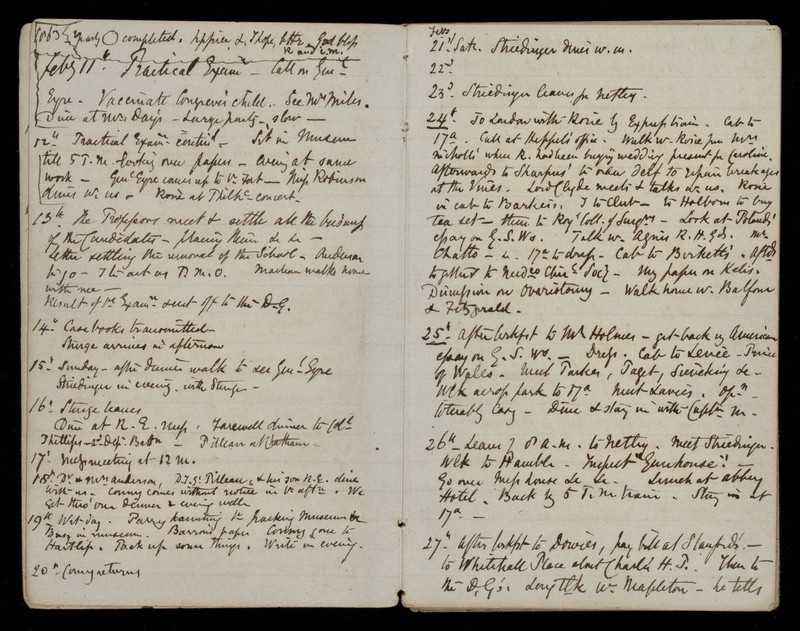 1863
completed. Happier & I hope, better. God bless
R and L.M.
Feby 11th. Practical Examn — Call on Genl
Eyre — Vaccinate Congreve's child. See Mrs Miles.
Dine at Mrs Days — Large party — slow —
12th Practical Examn contind — Sit in Museum
till 5 P.M. looking over papers — Evening at same
work — Genl Eyre comes up to Ft — Miss Robinson
dines w. us — Rosie at Philhc concert.
13th The Professors meet & settle all the business
of the Candidates — placing them &c &c —
Letter settling the removal of the School —
to be out as P.M.O. Maclean walks home
with me —
Result of the Examn sent off to the D.G.
14th Case books transmitted —
Sturge arrives in afternoon
15th Sunday — after dinner walk to see Genl Eyre
Striedinger in evening with Sturge —
16th Sturge leaves
Dine at R.E. Mess. Farewell dinner to Coll
Phillips — 2d Dept. Battn — Pilleau at Chatham —
17th Mess meeting at 12 M.
18th Dr & Mrs Anderson, D.I.G. Pilleau & his son R.E. dine
with us — Corny comes without notice in the aftn. We
get thro' our dinner & evening well
19th Wet day. Parry haunting the packing Museum &c
Busy in museum. Barrow's paper Corny gone to
Hartlip. Pack up some things. Write in evening.
20th Corny returns
Feby
21st Satr. Striedinger dines w. us.
22d
23d Striedinger leaves for Netley.
24th To London with Rosie by Express train. Cab to
17a. Call at Sheppds' office. Walk w. Rosie from Mrs
Nicholls' where R. had been buying wedding present for Caroline.
Afterwards to Sharpus' to order Delf to repair breakages
at the Vines. Lord Clyde meets & talks w. us. Rosie
in cab to Barkers. I to Club — to Holborn to buy
tea set — then to Roy. Coll. of Surgns — Look at
essay on G.S.Ws. Talk w. Agnis R.H.Gds. Mr
Chatto — 17a to dress — Cab to Birketts' — Aftds
together to Med Chirl Socy — My paper on Kelis.
Discussion on Ovariotomy — Walk home w. Balfour
& Fitzgerald.
25th After brkfst to Mr Holmes — get back my American
essay on G.S. Ws. — Dress. Cab to Levée — Prince
of Wales. Meet Parkes, Paget, Sieveking &c —
Wlk across park to 17a Meet Davies. Opn —
tolerably easy — Dine & stay in with Captn M.
26th Leave by 8 A.M. to Netley. Meet Striedinger.
Wlk to Hamble. Inspect "Gunhouse"!
Go over Mess house &c &c. Lunch at Abbey
Hotel. Back by 5 P.M. train. Stay in at
17a —
27th After brkfst to Dowies, pay bill at Stanford's —
to Whitehall Place about Charlie H.P. Then to
the D.G's. Long tlk w. Mapleton — he tells